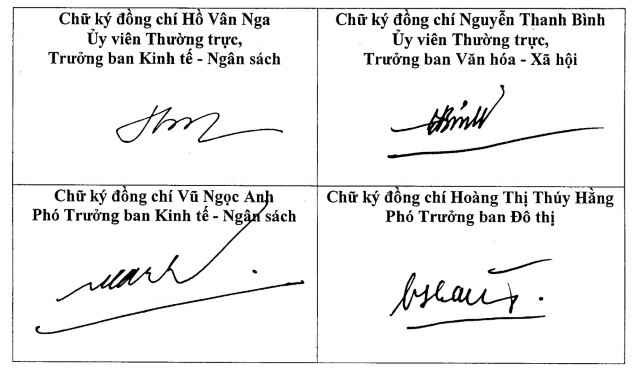 Chữ ký đồng chí Hồ Vân Nga
Ủy viên Thường trực,
Trưởng ban Kinh tế - Ngân sách
Chữ ký đồng chí Nguyễn Thanh Bình
Ủy viên Thường trực,
Trưởng ban Văn hóa - Xã hội
Chữ ký đồng chí Vũ Ngọc Anh
Phó Trưởng ban Kinh tế - Ngân sách
Chữ ký đồng chí Hoàng Thị Thúy Hằng
Phó Trưởng ban Đô thị